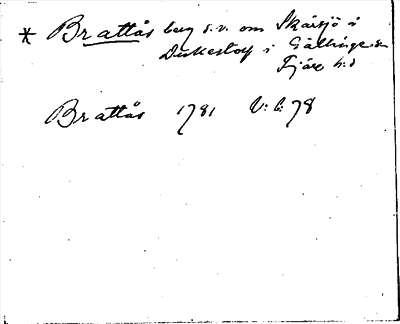 * Brattås berg s.v. om Skärsjö i
i Gällinge sn
Fjäre h:d
Brattås 1781 V: 6: 78